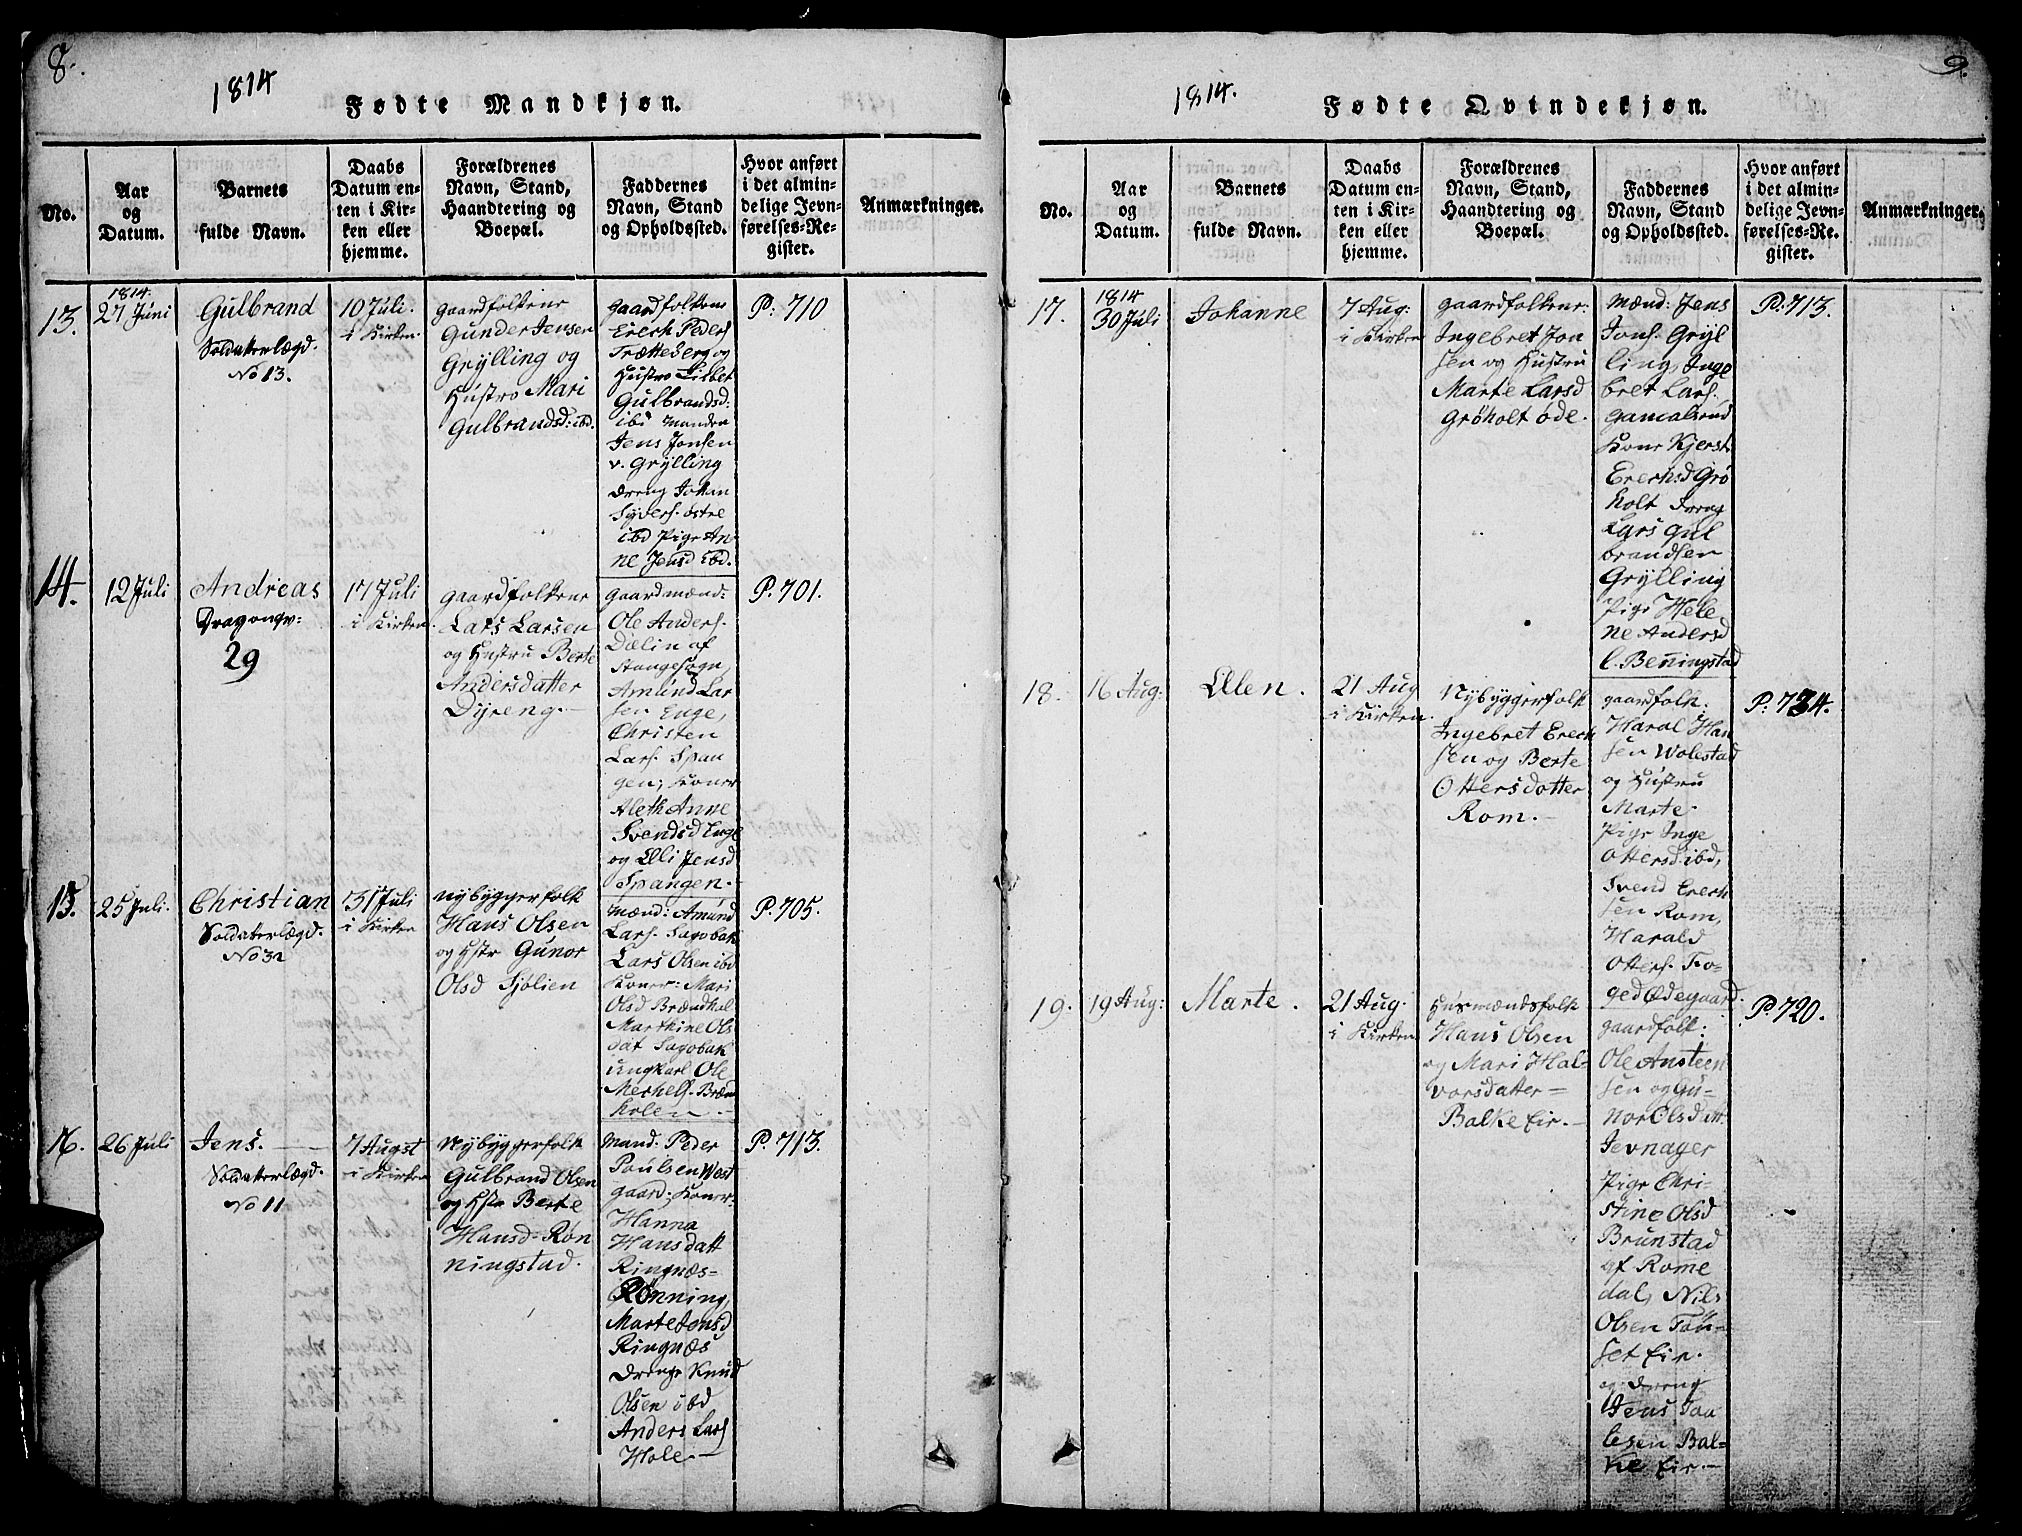 8.
1814
Fødte Mandkjøn.
No.
Aar
og
Datum.
Barnets
fulde Navn.
Daabs
Datum en-
ten i Kir-
ken eller
hjemme.
Forældrenes
Navn, Stand,
Haandtering og
Boepæl.
Faddernes
Navn, Stand
og Opholdssted.
Hvor anført
i det almin-
delige Jevn-
førelses-Re-
gister.
Anmærkninger.
13.
1814.
27 Juni
Gulbrand
Soldaterlægd.
No 13.
10 Juli.
i Kirken
gaardfolkene
Gunder Jensen
Grylling og
Hustro Mari
Gulbrandsd: ibd.
gaardfolkene
Erech Peders
Trætteberg og
Hustro Lisbet
Gulbrandsd:
ibi manden
Jens Jonsen
v. Grylling
dreng Johan
Syvers. østre
ibd Pige An-
ne Jensd ibd.
P: 710
14.
12 Juli
Andreas
Dragongv:
29
17 Juli
i Kirken.
gaardfolkene
Lars Larsen
og Hustru Berte
Andersdatter
Dyreng.-
gaardmænd:
Ole Anders.
Dælin af
Stangesogn,
Amund Lar
sen Enge,
Christen
Lars. Span
gen; Koner
Aleth Anne
Svendsd Enge
og Elli Jensd
Spangen.-
P. 701.
15.
25 Juli.
Christian
Soldaterlægd.
No 32
31 Juli
i Kirken
Nybyggerfolk
Hans Olsen
og Hstr Gunor
Olsd Sjølien
mænd: Amund
Lars. Sagobak
Lars Olsen ibd
Koner: Mari
Olsd Brændhol
Marthine Ols
dat Sagobak
ungkarl Ole
Merhels. Bræn
holen.-
P. 705.
16.
26 Juli
Jens.
Soldaterlægd.
No 11
7 Augst
i Kirken
Nybyggerfolk
Gulbrand Olsen
og Hstr Berte
Hansd- Røn
ningstad.
mænd: Peder
Poulsen West
gaard; Koner:
Hanna
Hansdatt
Ringnæs-
Rønning,
Marte Jensd
Ringnæs
drenge Knud
Olsen ibd
Anders Lars
Hole.-
P. 713.
9.
1814.
Fødte Qvindekjøn.
No.
Aar
og
Datum.
Barnets
fulde Navn.
Daabs
Datum en-
ten i Kir-
ken eller
hjemme.
Forældrenes
Navn, Stand,
Haandtering og
Boepæl.
Faddernes
Navn, Stand
og Opholdssted.
Hvor anført
i det almin-
delige Jevn-
førelses-Re-
gister.
Anmærkninger.
17.
1814
30 Juli
Johanne
7 Aug:
i Kirken
gaardfolkene:
Ingebret Jon
sen og Hustru
Marte Larsd
Grøholt øde.
mænd: Jens
Jons. Gryl
ling, Inge
bret Lars.
Gamalsrud
Kone Kjerst.
Erechsd Grø
holt dreng
Lars Gul
brandsen
Grylling
Pige Hele
ne Andersd
l. Benningstad
P: 713.
18.
16 Aug:
Ellen.
21 Aug
i Kirken.
Nybyggerfolk
Ingebret Erech
sen og Berte
Ottersdotter
Rom.-
gaardfolk:
Haral Han
sen Wolestad
og Hustru
Marte.
Pige Inge
Ottersd ibd,
Svend Erech
sen Rom,
Harald
Otters. Fo-
ged Ødegaard.
P: 734.
19.
19 Aug:
Marte.
21 Aug.
i Kirken
Husmændsfolk
Hans Olsen
og Mari Hal-
vorsdatter=
Balke Eir.-
gaardfolk:
Ole Ansteen
sen og Gu-
nor Olsd
Jevnager
Pige Chri-
stine Olsd
Brunstad
af Rome
dal, Nils
Olsen Tøn-
set Eir.
og dreng
Jens Joa
lesen Bal=
ke Eir.-
P. 720.